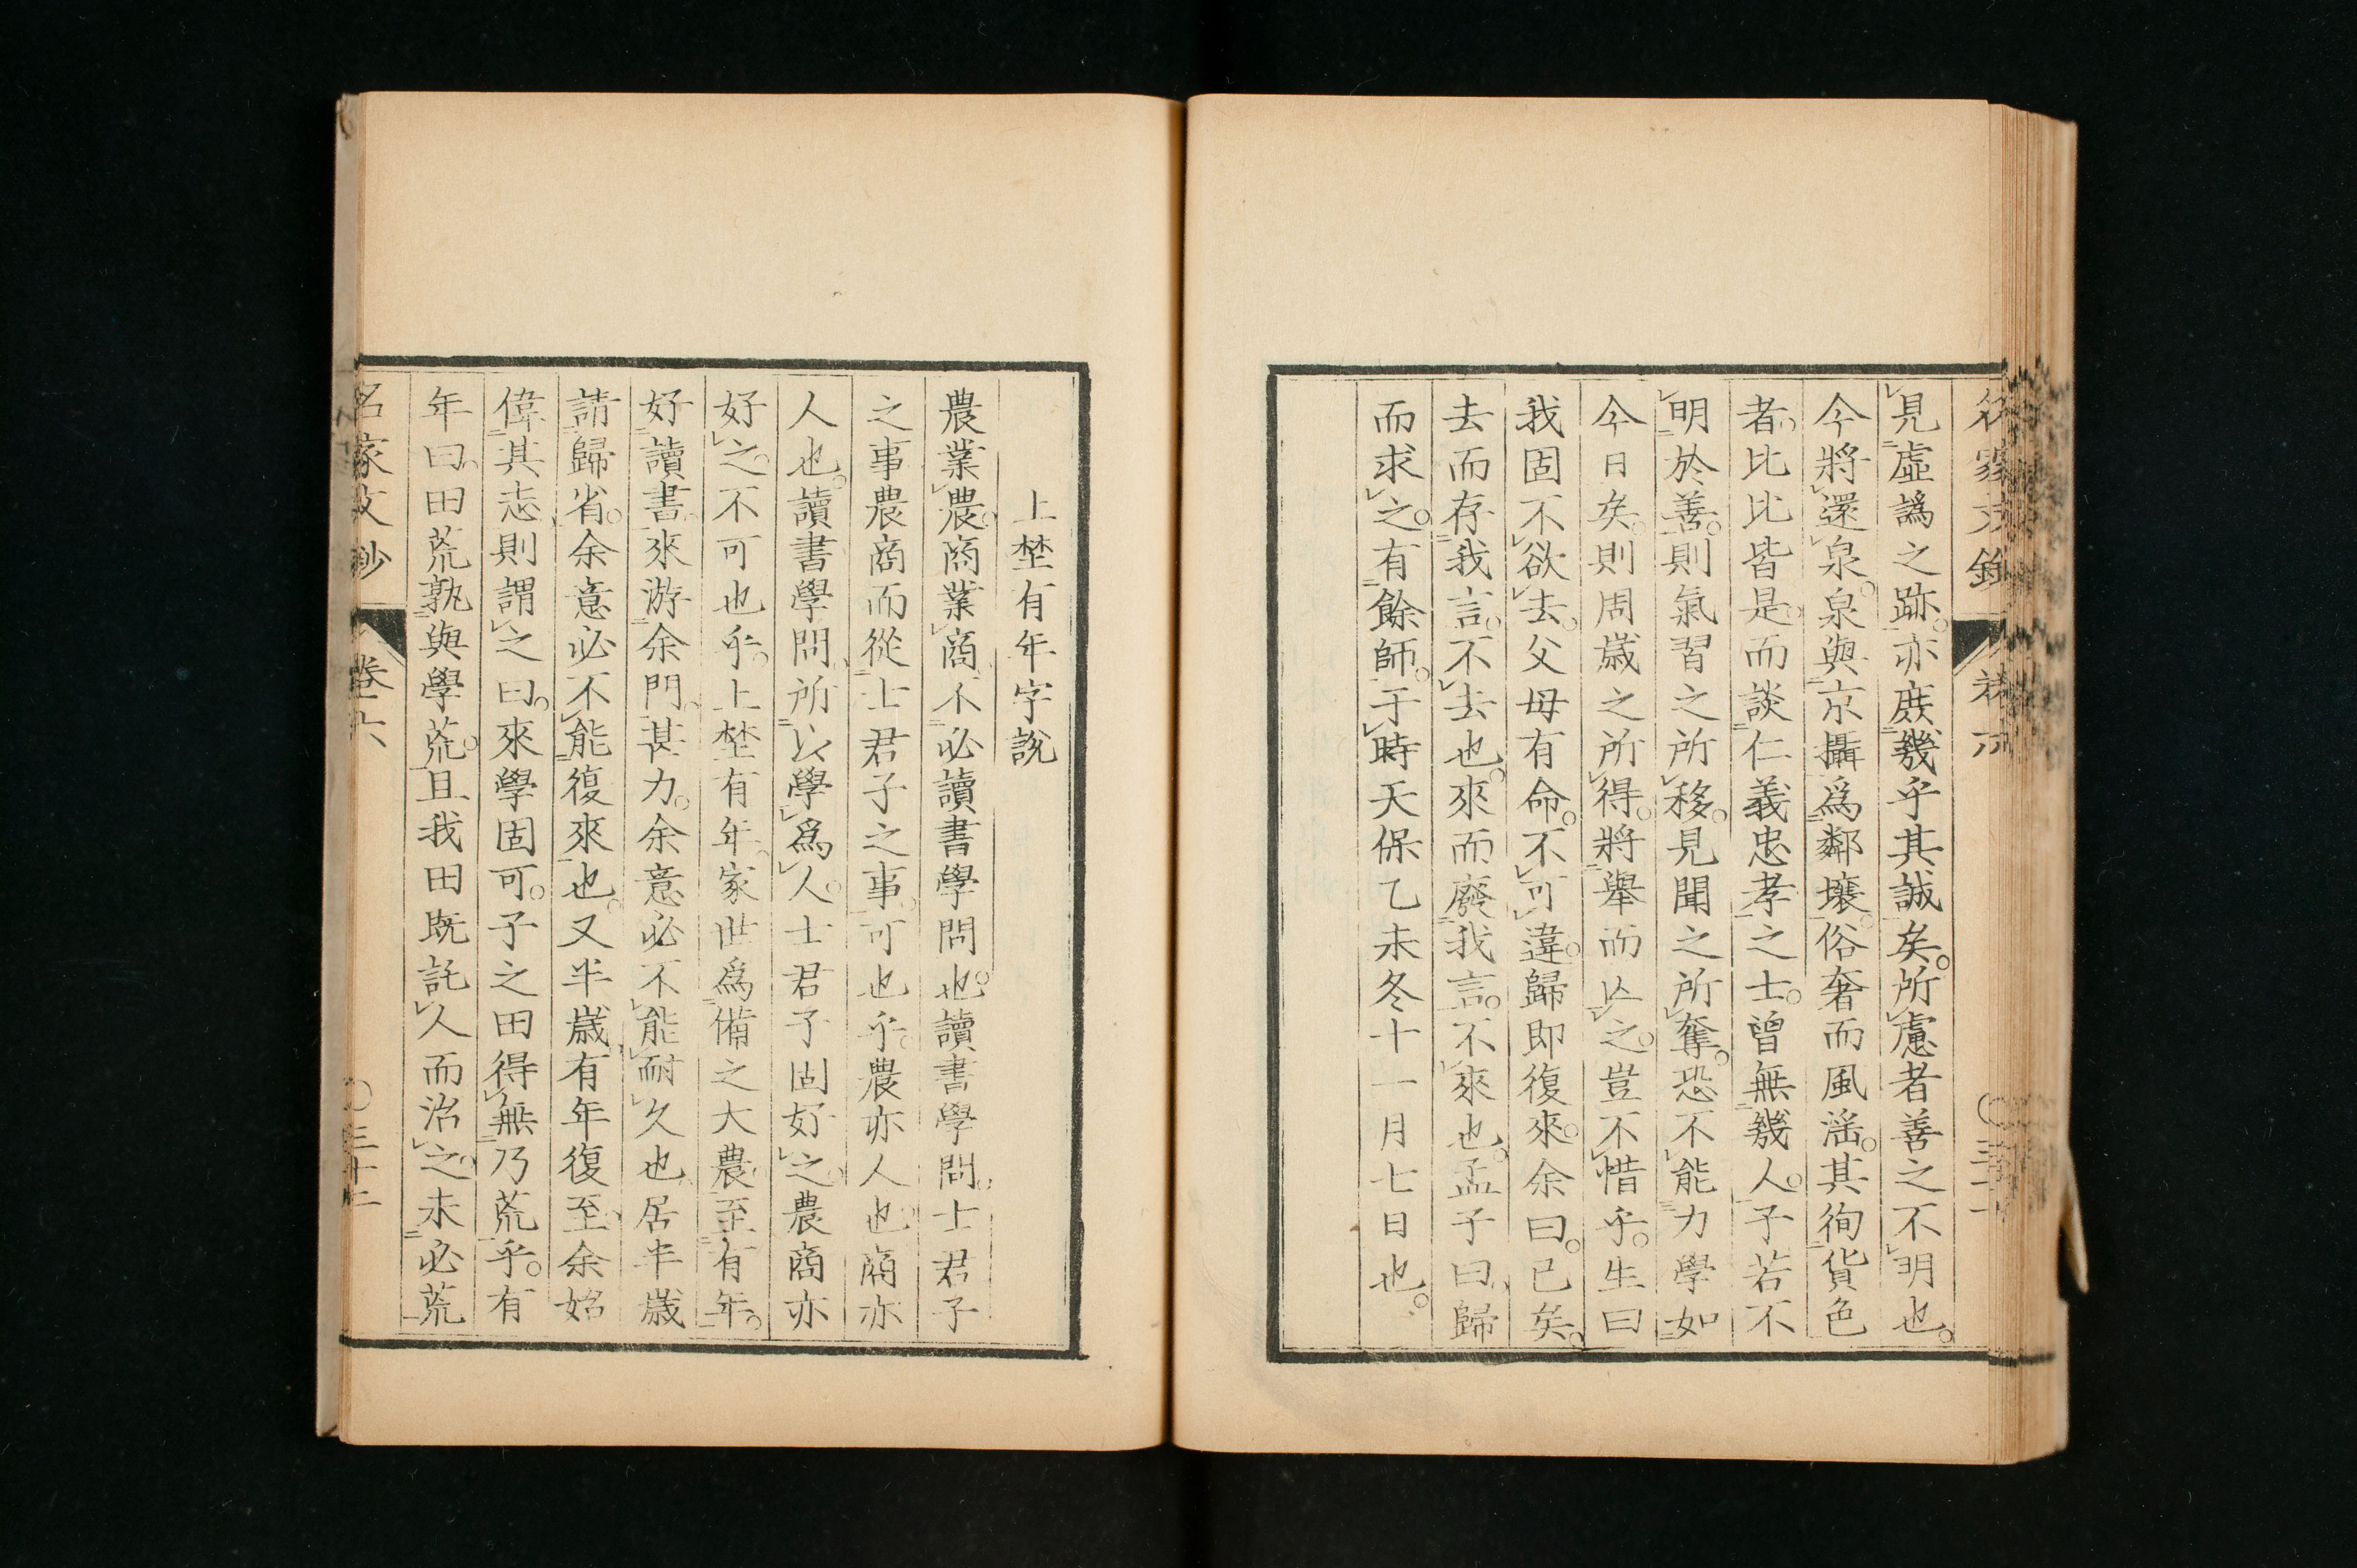 見虛譌之跡。亦庶幾乎其誠矣。所慮者善之不明也。
今將還泉。泉與京攝爲鄰壤。俗奢而風淫。其徇貨色
者。比比皆是。而談仁義忠孝之士。曾無幾人。子若不
明於善。則氣習之所移。見聞之所奪。恐不能力學如
今日矣。則周歲之所得。將舉而亾之。豈不惜乎。生曰
我固不欲去。父母有命。不可違。歸即復來。余曰。已矣。
去而存我言。不去也。來而廢我言。不來也。孟子曰。歸
而求之。有餘師。于時天保乙未冬十一月七日也。
上埜有年字說
農業農。商業商。不必讀書學問也。讀書學問。士君子
之事。農商而從士君子之事。可也乎。農亦人也。商亦
人也。讀書學問。所以學爲人。士君子固好之。農商亦
好之。不可也乎。上埜有年。家世爲備之大農。至有年。
好讀書。來游余門。甚力。余意必不能耐久也。居半歲
請歸省。余意必不能復來也。又半歲。有年復至。余始
偉其志。則謂之曰。來學固可。子之田得無乃荒乎。有
年曰。田荒孰與學荒。且我田既託人而治之。未必荒
名家文鈔
卷六
〇三十二